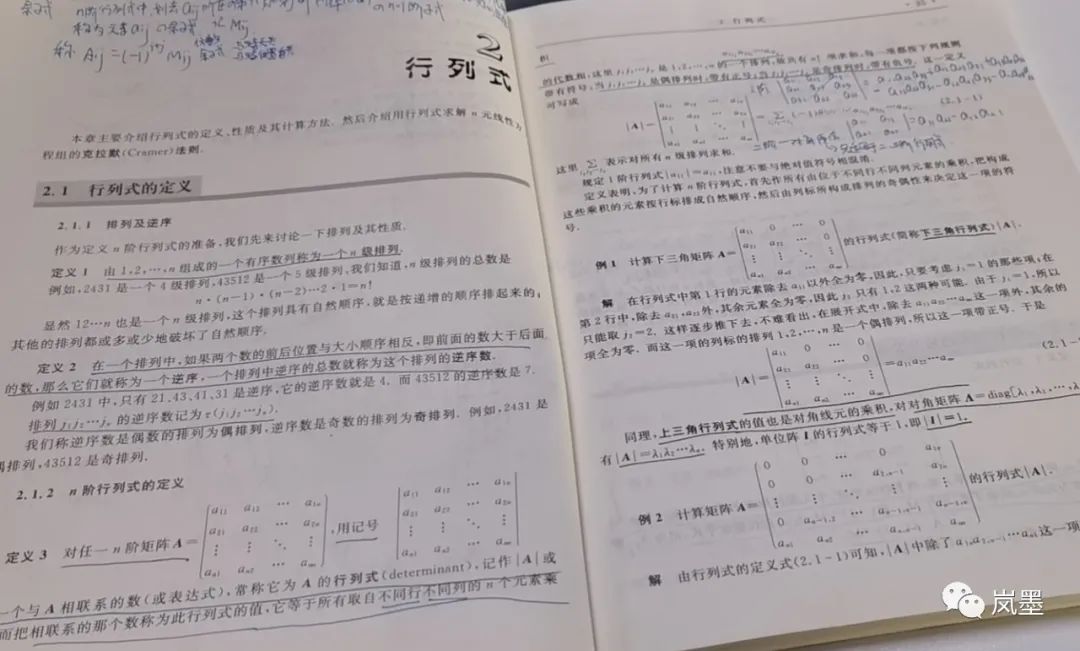 称 Aij=(-1)^{i+j} Mij
2
行列式
本章主要介绍行列式的定义,性质及其计算方法. 然后介绍用行列式求解 n 元线性方
程组的克拉默(Cramer)法则.
2.1 行列式的定义
2.1.1 排列及逆序
作为定义 n 阶行列式的准备,我们先来讨论一下排列及其性质.
定义 1 由 1,2,…,n 组成的一个有序数列称为一个 n 级排列.
例如,2431 是一个 4 级排列,43512 是一个 5 级排列,我们知道,n 级排列的总数是
n·(n-1)·(n-2)…2·1=n!
显然 12…n 也是一个 n 级排列,这个排列具有自然顺序,就是按递增的顺序排起来的;
其他的排列都或多或少地破坏了自然顺序.
定义 2 在一个排列中,如果两个数的前后位置与大小顺序相反,即前面的数大于后面
的数,那么它们就称为一个逆序,一个排列中逆序的总数就称为这个排列的逆序数.
例如 2431 中,只有 21,43,41,31 是逆序,它的逆序数就是 4. 而 43512 的逆序数是 7.
排列 j₁j₂…jₙ 的逆序数记为 τ(j₁j₂…jₙ).
我们称逆序数是偶数的排列为偶排列,逆序数是奇数的排列为奇排列. 例如,2431 是
偶排列,43512 是奇排列.
2.1.2 n 阶行列式的定义
a₁₁ a₁₂ … a₁ₙ a₁₁ a₁₂ … a₁ₙ
a₂₁ a₂₂ … a₂ₙ a₂₁ a₂₂ … a₂ₙ
定义 3 对任一 n 阶矩阵 A= ⋮ ⋮ ⋱ ⋮ ,用记号 ⋮ ⋮ ⋱ ⋮
aₙ₁ aₙ₂ … aₙₙ aₙ₁ aₙ₂ … aₙₙ
一个与 A 相联系的数(或表达式),常称它为 A 的行列式(determinant),记作 |A| 或
而把相联系的那个数称为此行列式的值,它等于所有取自不同行不同列的 n 个元素乘
行列式
积
的代数和,这里 j₁,j₂,…,jₙ 是 1,2,…,n 的一个排列,故共有 n! 项求和,每一项都按下列规则
带有符号:当 j₁,j₂,…,jₙ 是偶排列时,带有正号;当 j₁,j₂,…,jₙ 是奇排列时,带有负号. 这一定义
可写成
|A|=
(2.1-1)
这里 Σ 表示对所有 n 级排列求和.
规定 1 阶行列式 |a₁₁|=a₁₁,注意不要与绝对值符号相混淆.
定义表明,为了计算 n 阶行列式,首先作所有由位于不同行不同列元素的乘积,把构成
这些乘积的元素按行标排成自然顺序,然后由列标所构成排列的奇偶性来决定这一项的符
号.
a₁₁ 0 … 0
a₂₁ a₂₂ … 0
例 1 计算下三角矩阵 A= ⋮ ⋮ ⋱ ⋮ 的行列式(简称下三角行列式)|A|.
aₙ₁ aₙ₂ … aₙₙ
解 在行列式中第 1 行的元素除去 a₁₁ 以外全为零,因此,只要考虑 j₁=1 的那些项;在
第 2 行中,除去 a₂₁,a₂₂ 外,其余元素全为零,因此 j₂ 只有 1,2 这两种可能. 由于 j₁=1,所以
只能取 j₂=2. 这样逐步推下去,不难看出,在展开式中,除去 a₁₁a₂₂…aₙₙ 这一项外,其余的
项全为零. 而这一项的列标的排列 1,2,…,n 是一个偶排列,所以这一项带正号. 于是
a₁₁ 0 … 0
a₂₁ a₂₂ … 0
|A|= ⋮ ⋮ ⋱ ⋮ =a₁₁a₂₂…aₙₙ (2.1-
aₙ₁ aₙ₂ … aₙₙ
同理,上三角行列式的值也是对角线元的乘积,对对角矩阵 A=diag[λ₁,λ₂,…,λ
有 |A|=λ₁λ₂…λₙ. 特别地,单位阵 I 的行列式等于 1,即 |I|=1.
0 0 … 0 a₁ₙ
0 0 … a₂,ₙ₋₁ a₂ₙ
例 2 计算矩阵 A= ⋮ ⋮ ⋮ ⋮ 的行列式 |A|.
0 aₙ₋₁,₂ … aₙ₋₁,ₙ₋₁ aₙ₋₁,ₙ
aₙ₁ aₙ₂ … aₙ,ₙ₋₁ aₙₙ
解 由行列式的定义式(2.1-1)可知,|A|中除了 a₁ₙa₂,ₙ₋₁…aₙ₁ 这一项
岚墨